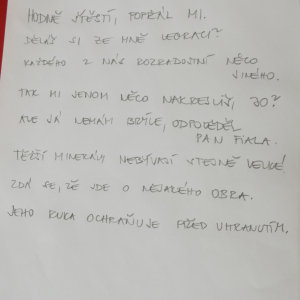 HODNĚ ŠTĚSTÍ, POPŘÁL MI.
DĚLÁŠ SI ZE MNĚ LEGRACI?
KAŽDÉHO Z NÁS ROZRADOSTNÍ NĚCO
JINÉHO.
TAK MI JENOM NĚCO NAKRESLÍŠ, JO?
ALE JÁ NEMÁM BRÝLE, ODPOVĚDĚL
PAN FIALA.
TĚŽŠÍ MINERÁLY NEBÝVAJÍ STEJNĚ VELKÉ
ZDÁ SE, ŽE JDE O NĚJAKÉHO OBRA.
JEHO RUKA OCHRAŇUJE PŘED UHRANUTÍM.